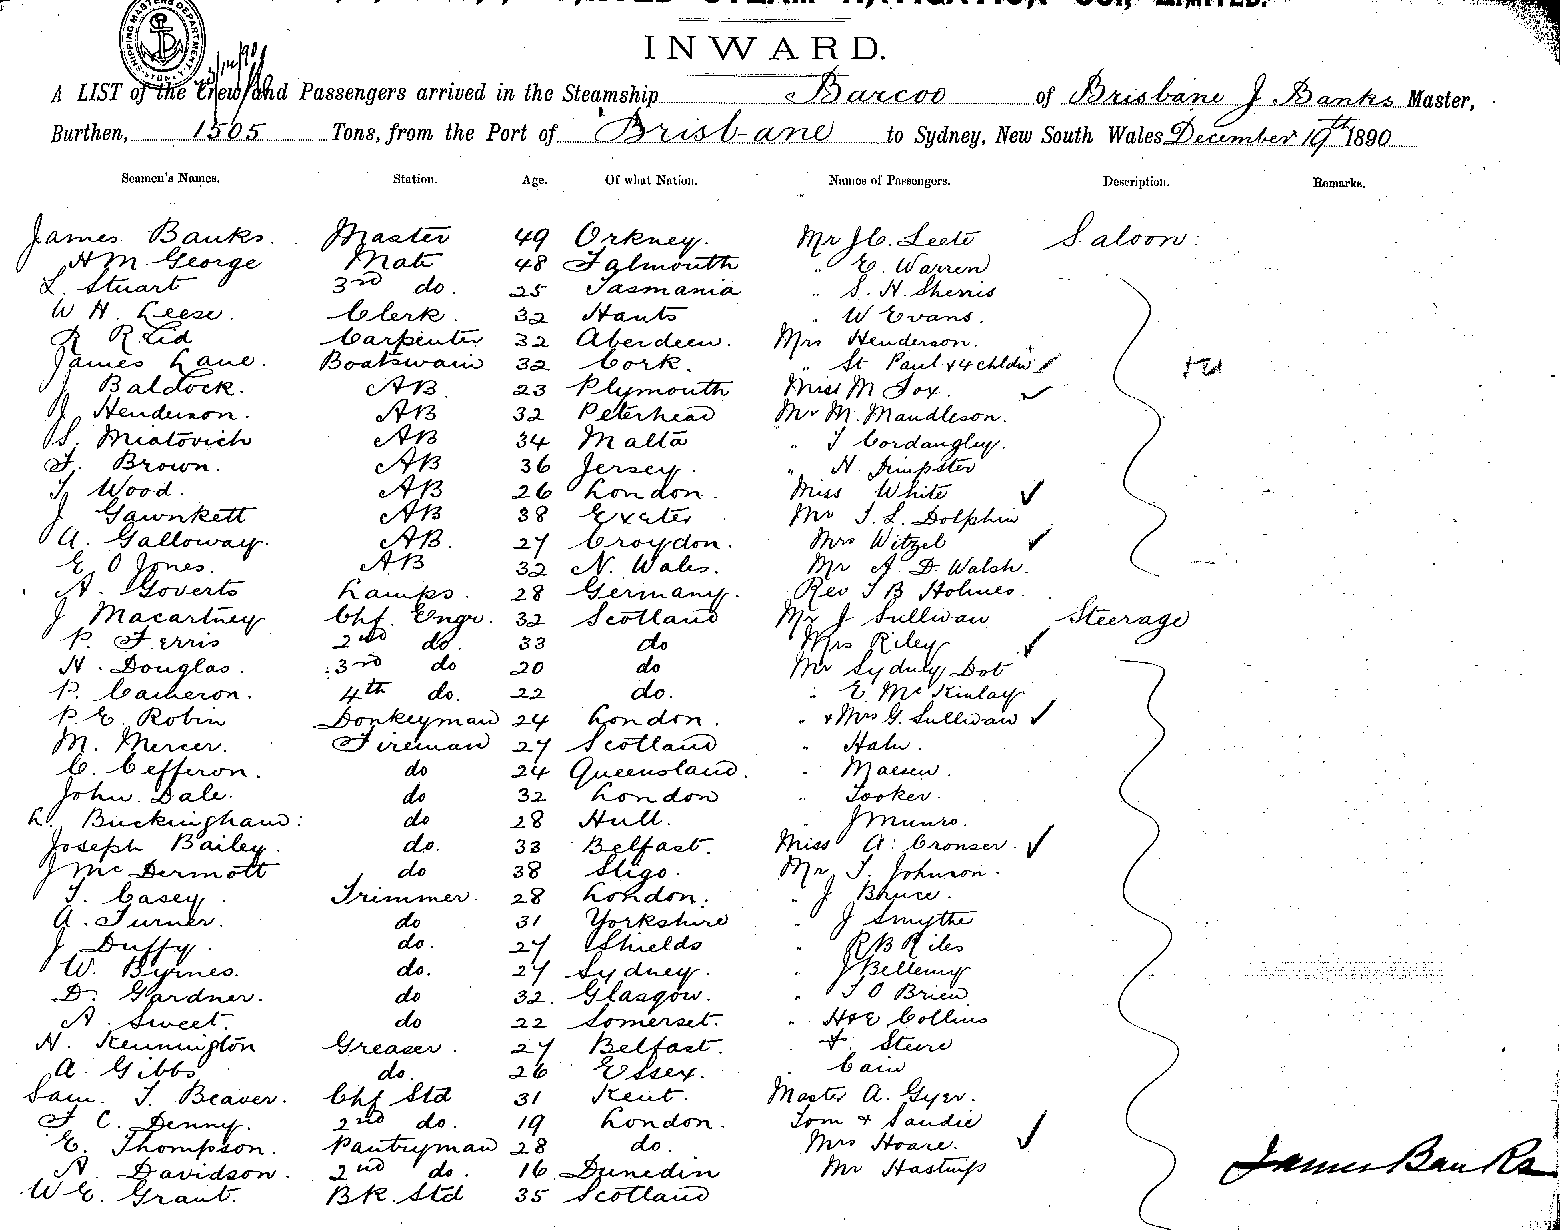 STEAM NAVIGATION COY, LIMITED.
SHIPPING MASTERS DEPARTMENT SYDNEY
INWARD.
A LIST of the Crew and Passengers arrived in the Steamship Barcoo of Brisbane J Banks Master,
Burthen, 1505 Tons, from the Port of Brisbane to Sydney, New South Wales December 19th 1890
Seamen's Names. Station. Age. Of what Nation. Names of Passengers. Description. Remarks.
James Banks. Master 49 Orkney. Mr J C. Leete Saloon:
H M George Mate 48 Falmouth " E. Warren
L. Stuart 3rd do. 25 Tasmania " S. H. Sherris
W H. Leese. Clerk. 32 Hants " W Evans.
R Reid Carpenter 32 Aberdeen. Mrs Henderson.
James Lane. Boatswain 32 Cork. " St Paul & 4 chldn ✓
J Baldock. AB 23 Plymouth Miss M Fox. ✓
J Henderson. AB 32 Peterhead Mr M. Mandleson.
S. Miatovich AB 34 Malta " T Cordangley.
F. Brown. AB 36 Jersey. " H. Dimpster
T. Wood. AB 26 London. Miss White ✓
J Gawnkett AB 38 Exeter Mr T. L. Dolphin
A. Galloway. AB. 27 Croydon. Mrs Witzel ✓
E O Jones. AB 32 N. Wales. Mr A. D. Walsh.
A. Goverts Lamps. 28 Germany. Rev T B Holmes.
J Macartney Chf. Engr. 32 Scotland Mr J Sullivan Steerage
P. Ferris 2nd do. 33 do Mrs Riley ✓
H. Douglas. 3rd do 20 do Mr Sydney Dot
P. Cameron. 4th do. 22 do. " E McKinlay
P. E. Robin Donkeyman 24 London. " & Mrs G. Sullivan ✓
M. Mercer. Fireman 27 Scotland " Hahn.
C. Cefferon. do 24 Queensland. " Maesen.
John Dale. do 32 London " Tooker.
L. Buckingham: do 28 Hull. " J Munro.
Joseph Bailey. do. 33 Belfast. Miss A. Cronser. ✓
J Mc Dermott do 38 Sligo. Mr T. Johnson.
T. Casey. Trimmer. 28 London. " J Bruce.
A. Turner. do 31 Yorkshire " J Smythe
J Duffy. do. 27 Shields " R B Riles
W. Byrnes. do. 27 Sydney. " J Bellemy
D. Gardner. do 32. Glasgow. " T O Brien
A. Sweet. do 22 Somerset. " H & E Collins
H. Kennington Greaser. 27 Belfast. " F. Steere
A. Gibbs do. 26 Essex. " Cain
Sam. T. Beaver. Chf Std 31 Kent. Master A. Gyer.
F C. Denny. 2nd do. 19 London. Tom & Sandie
E. Thompson. Pantryman 28 do. Mrs Hoare. ✓
A. Davidson. 2nd do. 16 Dunedin Mr Hastrup
W E. Grant. Bk. Std 35 Scotland
James Banks